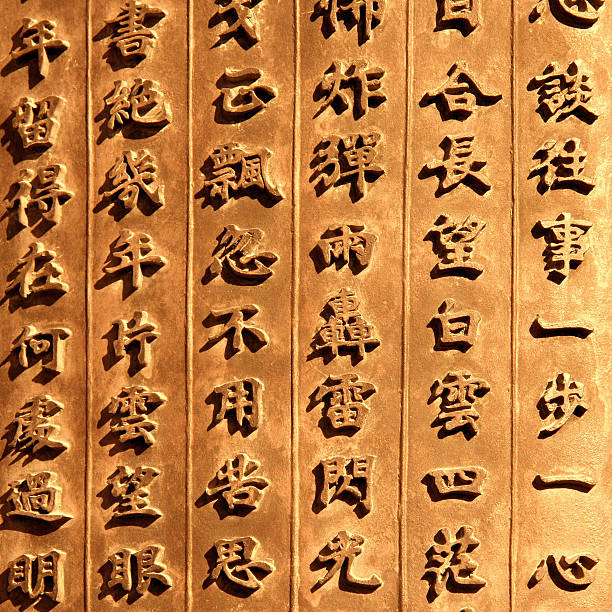 談往事一步一心
合長望白雲四茫
炸彈雨轟雷閃光
正飄忽不用苦思
書絕幾年片雲望眼
年留得在何處過明